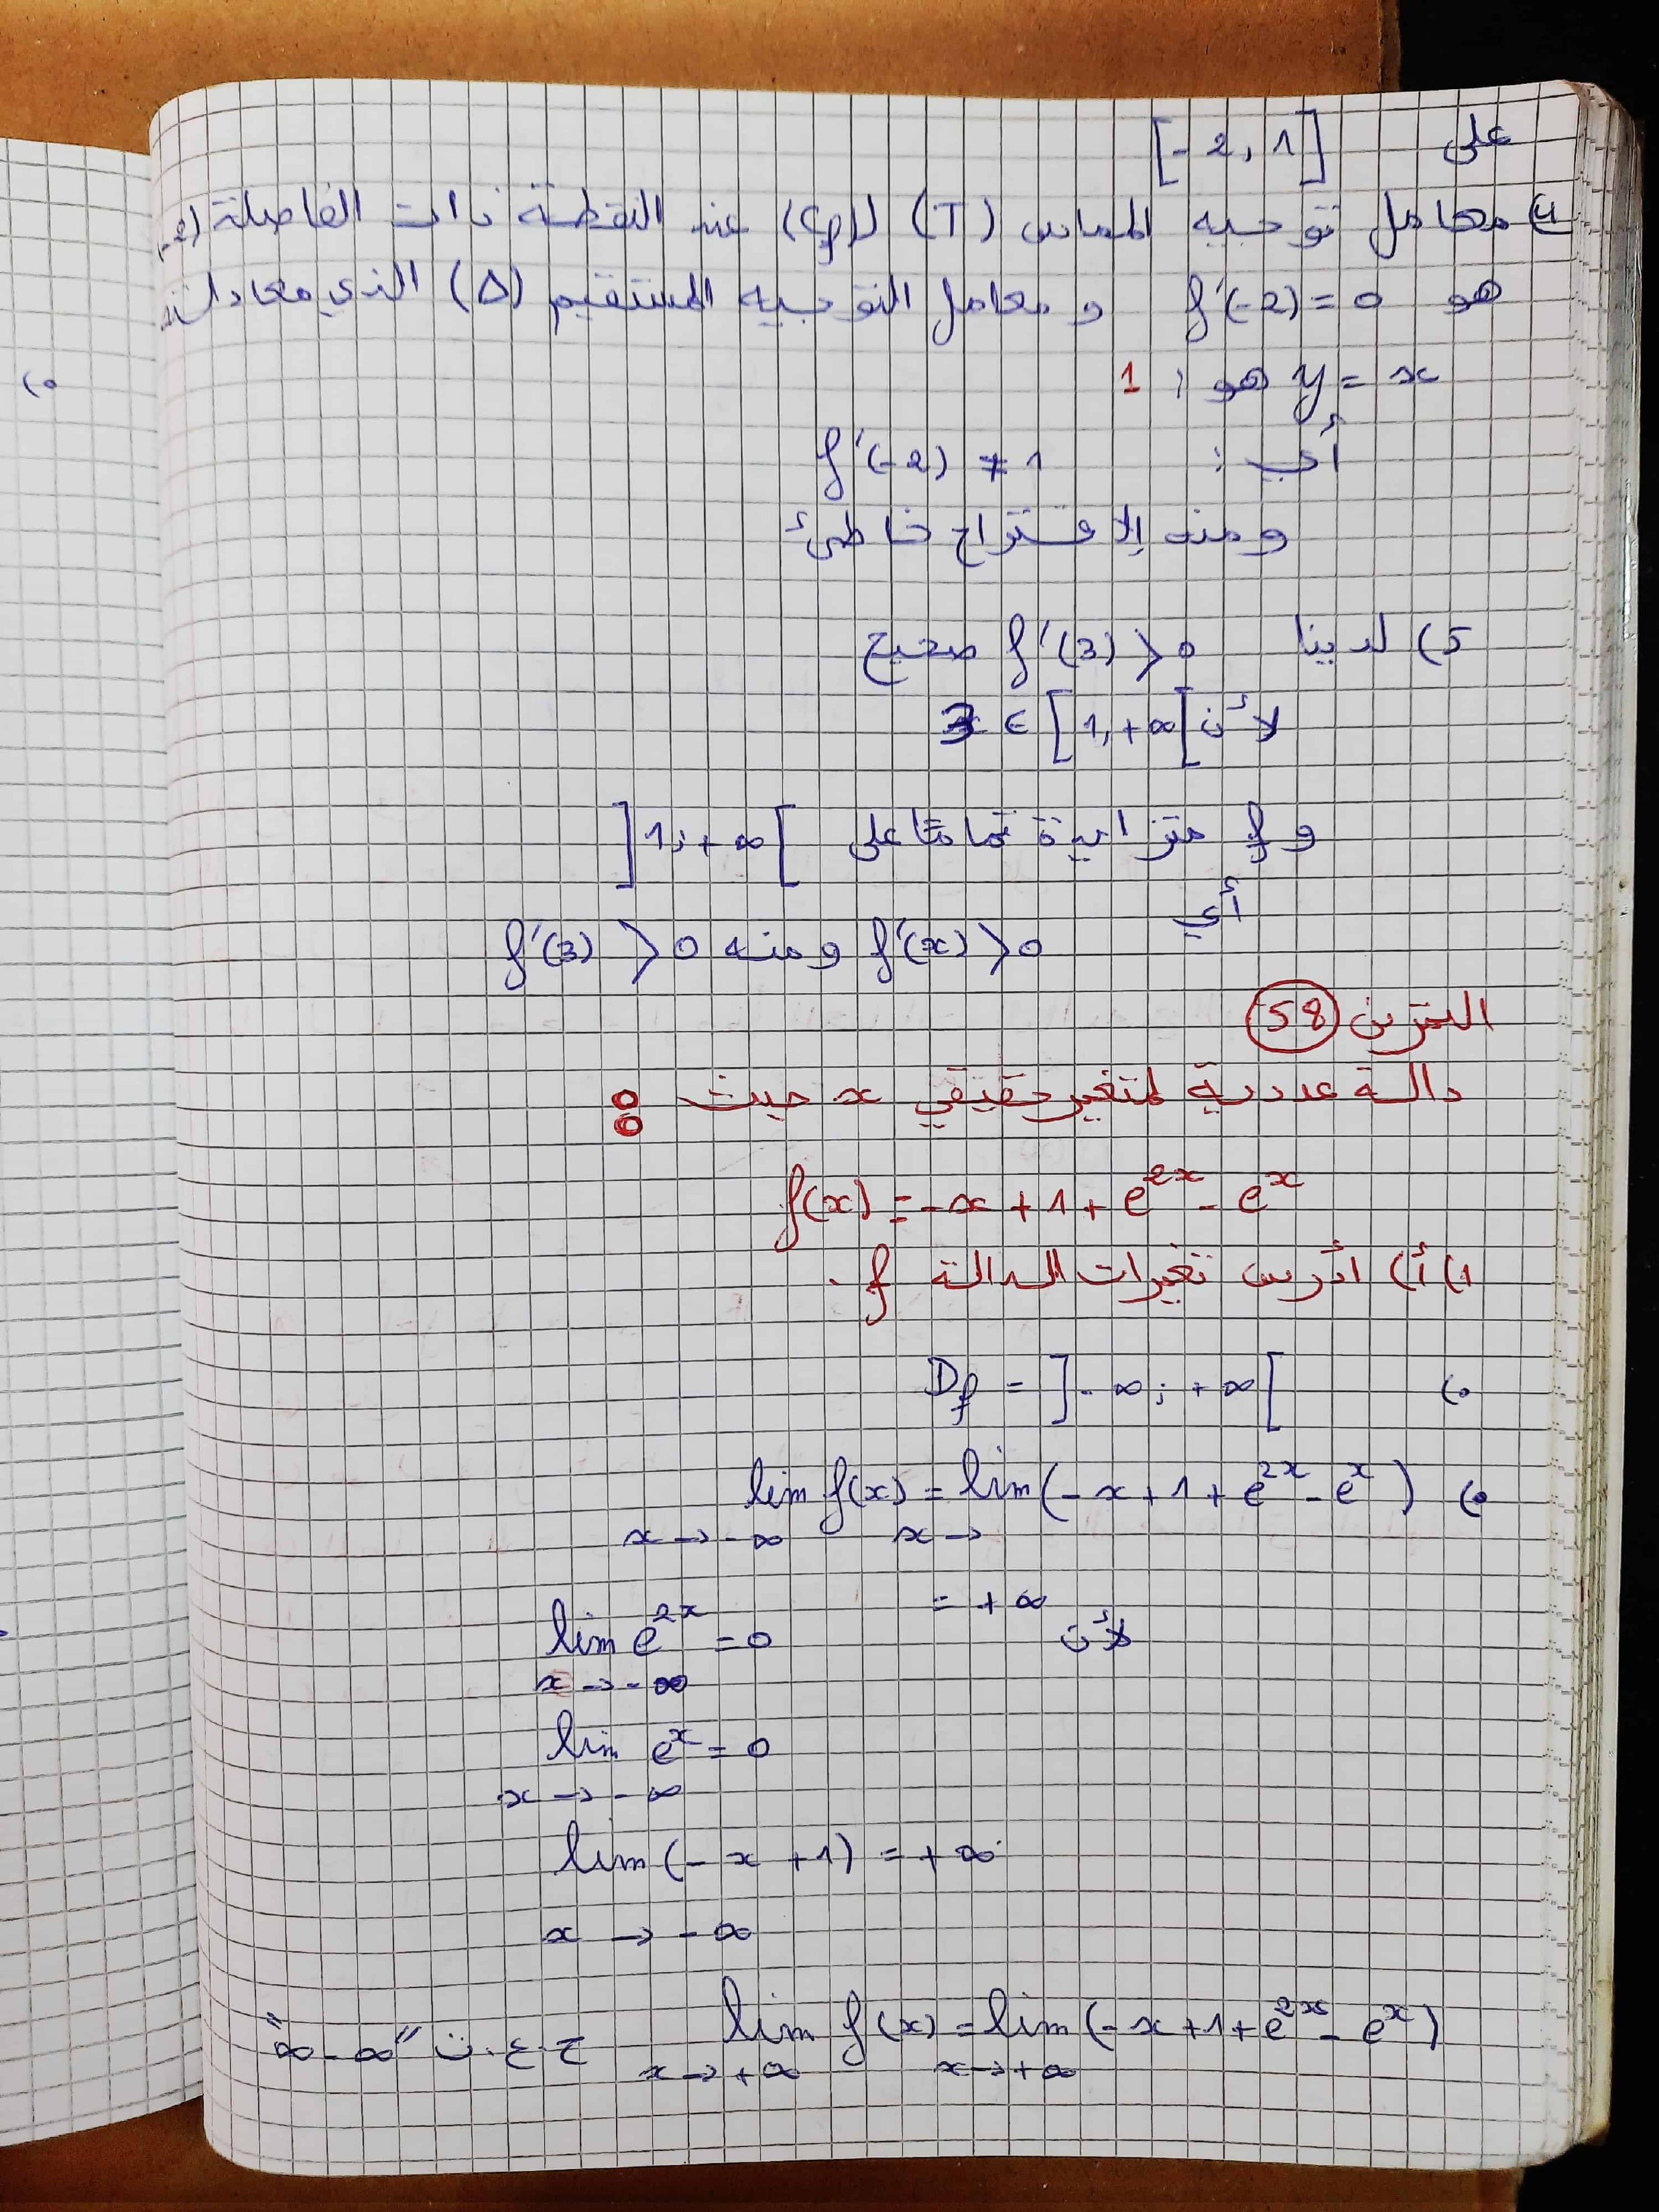 على [-2, 1]
4) معامل توجيه المماس (T) لـ(Cf) عند النقطة ذات الفاصلة (-2)
هو f'(-2) = 0 و معامل التوجيه المستقيم (Δ) الذي معادلته
y = x هو : 1
أي : f'(-2) ≠ 1
ومنه الاقتراح خاطئ
5) لدينا f'(3) > 0 صحيح
لأن 3 ∈ [1, +∞[
و f متزايدة تماما على ]1; +∞[
أي
f'(x) > 0 ومنه f'(3) > 0
التمرين 58
دالة عددية لمتغير حقيقي x حيث :
f(x) = -x + 1 + e^{2x} - e^x
1) أ) أدرس تغيرات الدالة f.
•) Df = ]-∞; +∞[
•) lim f(x) = lim (-x + 1 + e^{2x} - e^x)
x → -∞ x →
= +∞
لأن lim e^{2x} = 0
x → -∞
lim e^x = 0
x → -∞
lim (-x + 1) = +∞
x → -∞
lim f(x) = lim (-x + 1 + e^{2x} - e^x) ح.ع.ت "∞ - ∞"
x → +∞ x → +∞
•)